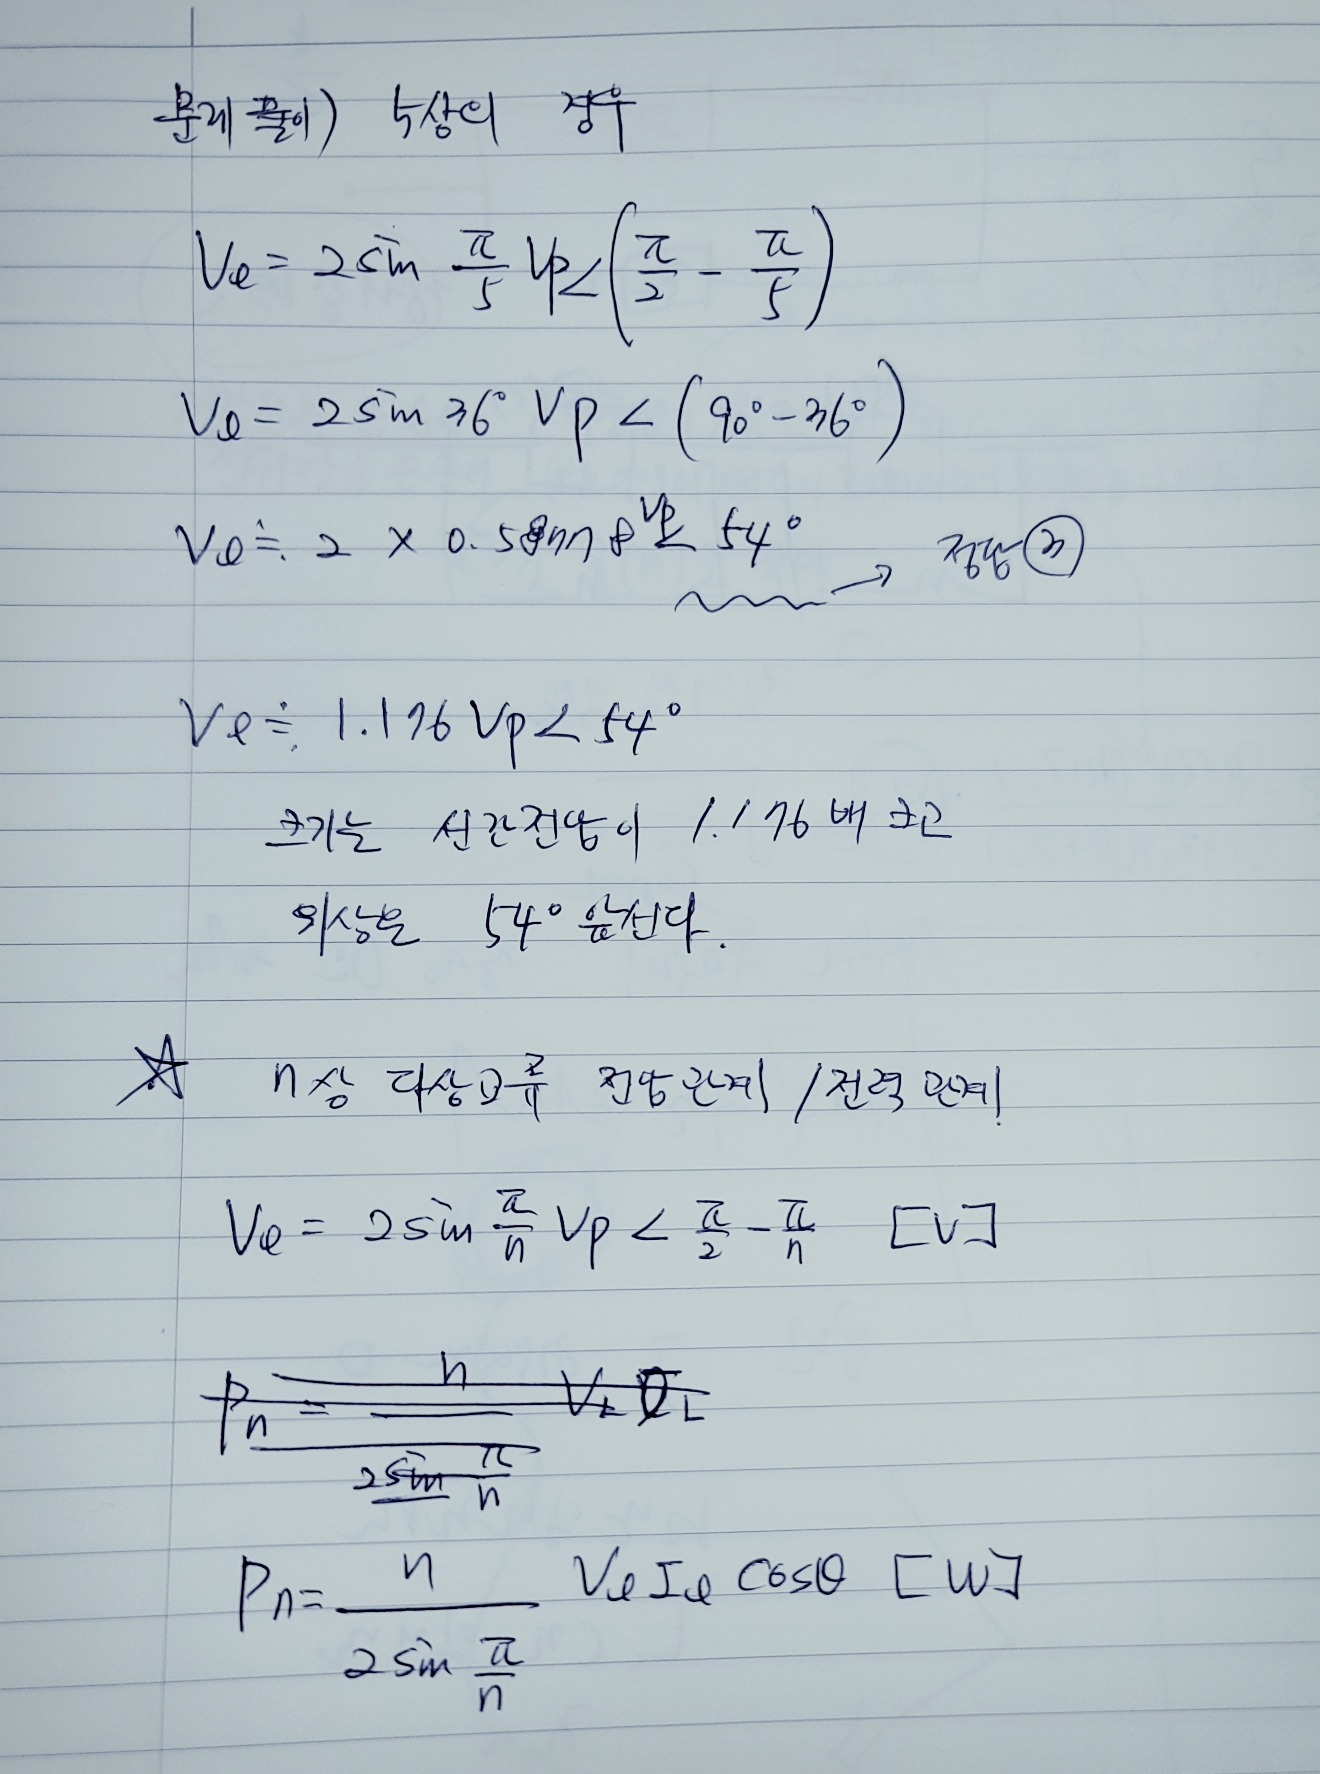 문제 풀이) 5상의 경우
Vℓ = 2 sin π/5 Vp∠(π/2 - π/5)
Vℓ = 2 sin 36° Vp∠(90° - 36°)
Vℓ ≒ 2 × 0. Vp∠54° → 정답 ③
Vℓ ≒ 1.176 Vp∠54°
크기는 선간전압이 1.176 배 크고
위상은 54° 앞선다.
☆ n상 다상교류 전압관계 / 전력관계
Vℓ = 2 sin π/n Vp∠ π/2 - π/n [V]
Pn = n / (2 sin π/n) Vℓ Iℓ cosθ [W]